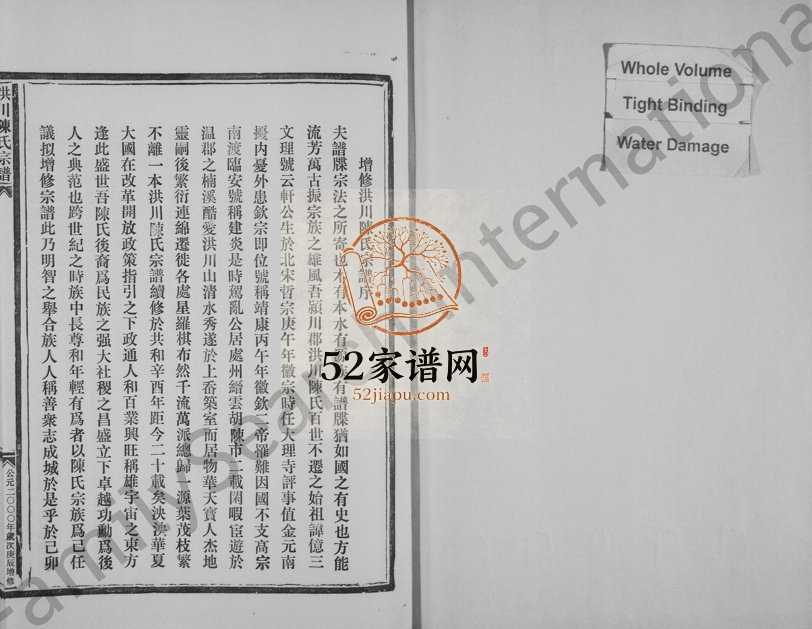 增修洪川陳氏宗譜序
夫譜牒宗法之所寄也木有本水有源家有譜牒猶如國之有史也方能
流芳萬古振宗族之雄風吾潁川郡洪川陳氏百世不遷之始祖諱億三
文理號云軒公生於北宋哲宗庚午年徽宗時任大理寺評事值金元南
擾内憂外患欽宗即位號稱靖康丙午年徽欽二帝罹難因國不支高宗
南渡臨安號稱建炎是時駕亂公居處州縉雲胡陳市二載閑暇宦遊於
温郡之楠溪酷愛洪川山清水秀遂於上岙築室而居物華天寶人杰地
靈嗣後繁衍連綿遷徙各處星羅棋布然千流萬派總歸一源葉茂枝繁
不離一本洪川陳氏宗譜續修於共和辛酉年距今二十載矣泱泱華夏
大國在改革開放政策指引之下政通人和百業興旺稱雄宇宙之東方
逢此盛世吾陳氏後裔爲民族之强大社稷之昌盛立下卓越功勳爲後
人之典范也跨世紀之時族中長尊和年輕有爲者以陳氏宗族爲己任
議拟增修宗譜此乃明智之舉合族人人稱善衆志成城於是乎於己卯
洪川陳氏宗譜
公元二〇〇〇年歲次庚辰增修
Whole Volume
Tight Binding
Water Damage
52家谱网
52jiapu.com
FamilySearch International